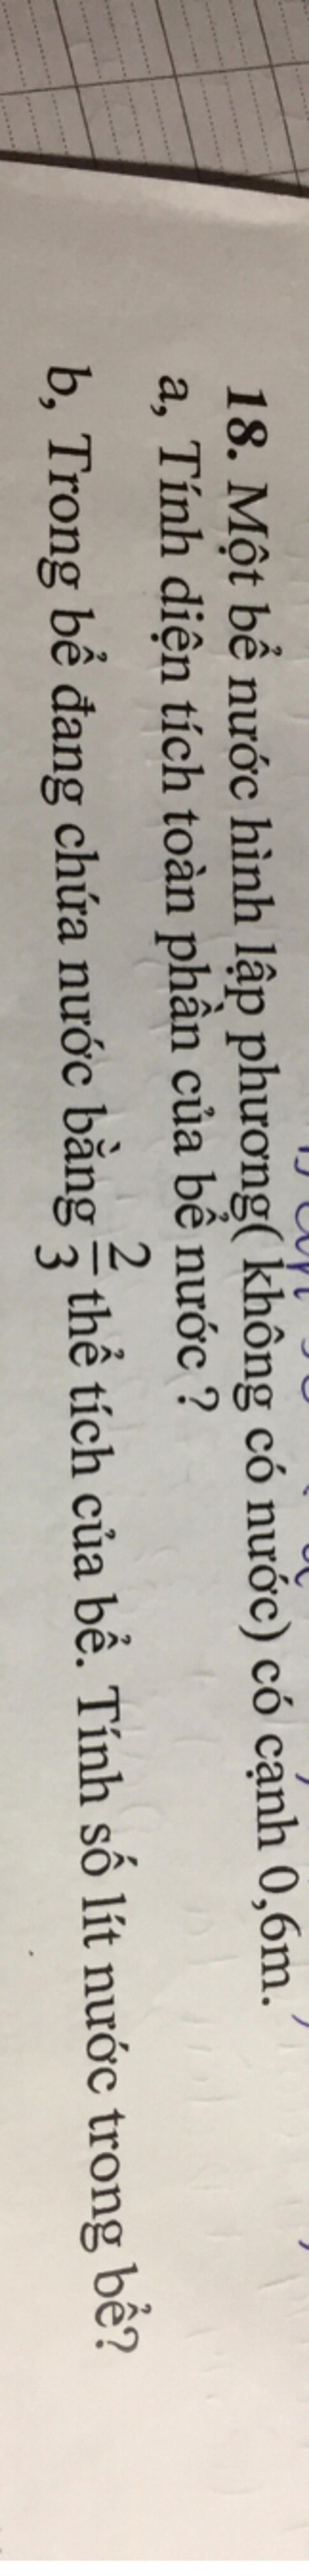 18. Một bể nước hình lập phương( không có nước) có cạnh 0,6m.
a, Tính diện tích toàn phần của bể nước ?
b, Trong bể đang chứa nước bằng 2/3 thể tích của bể. Tính số lít nước trong bể?